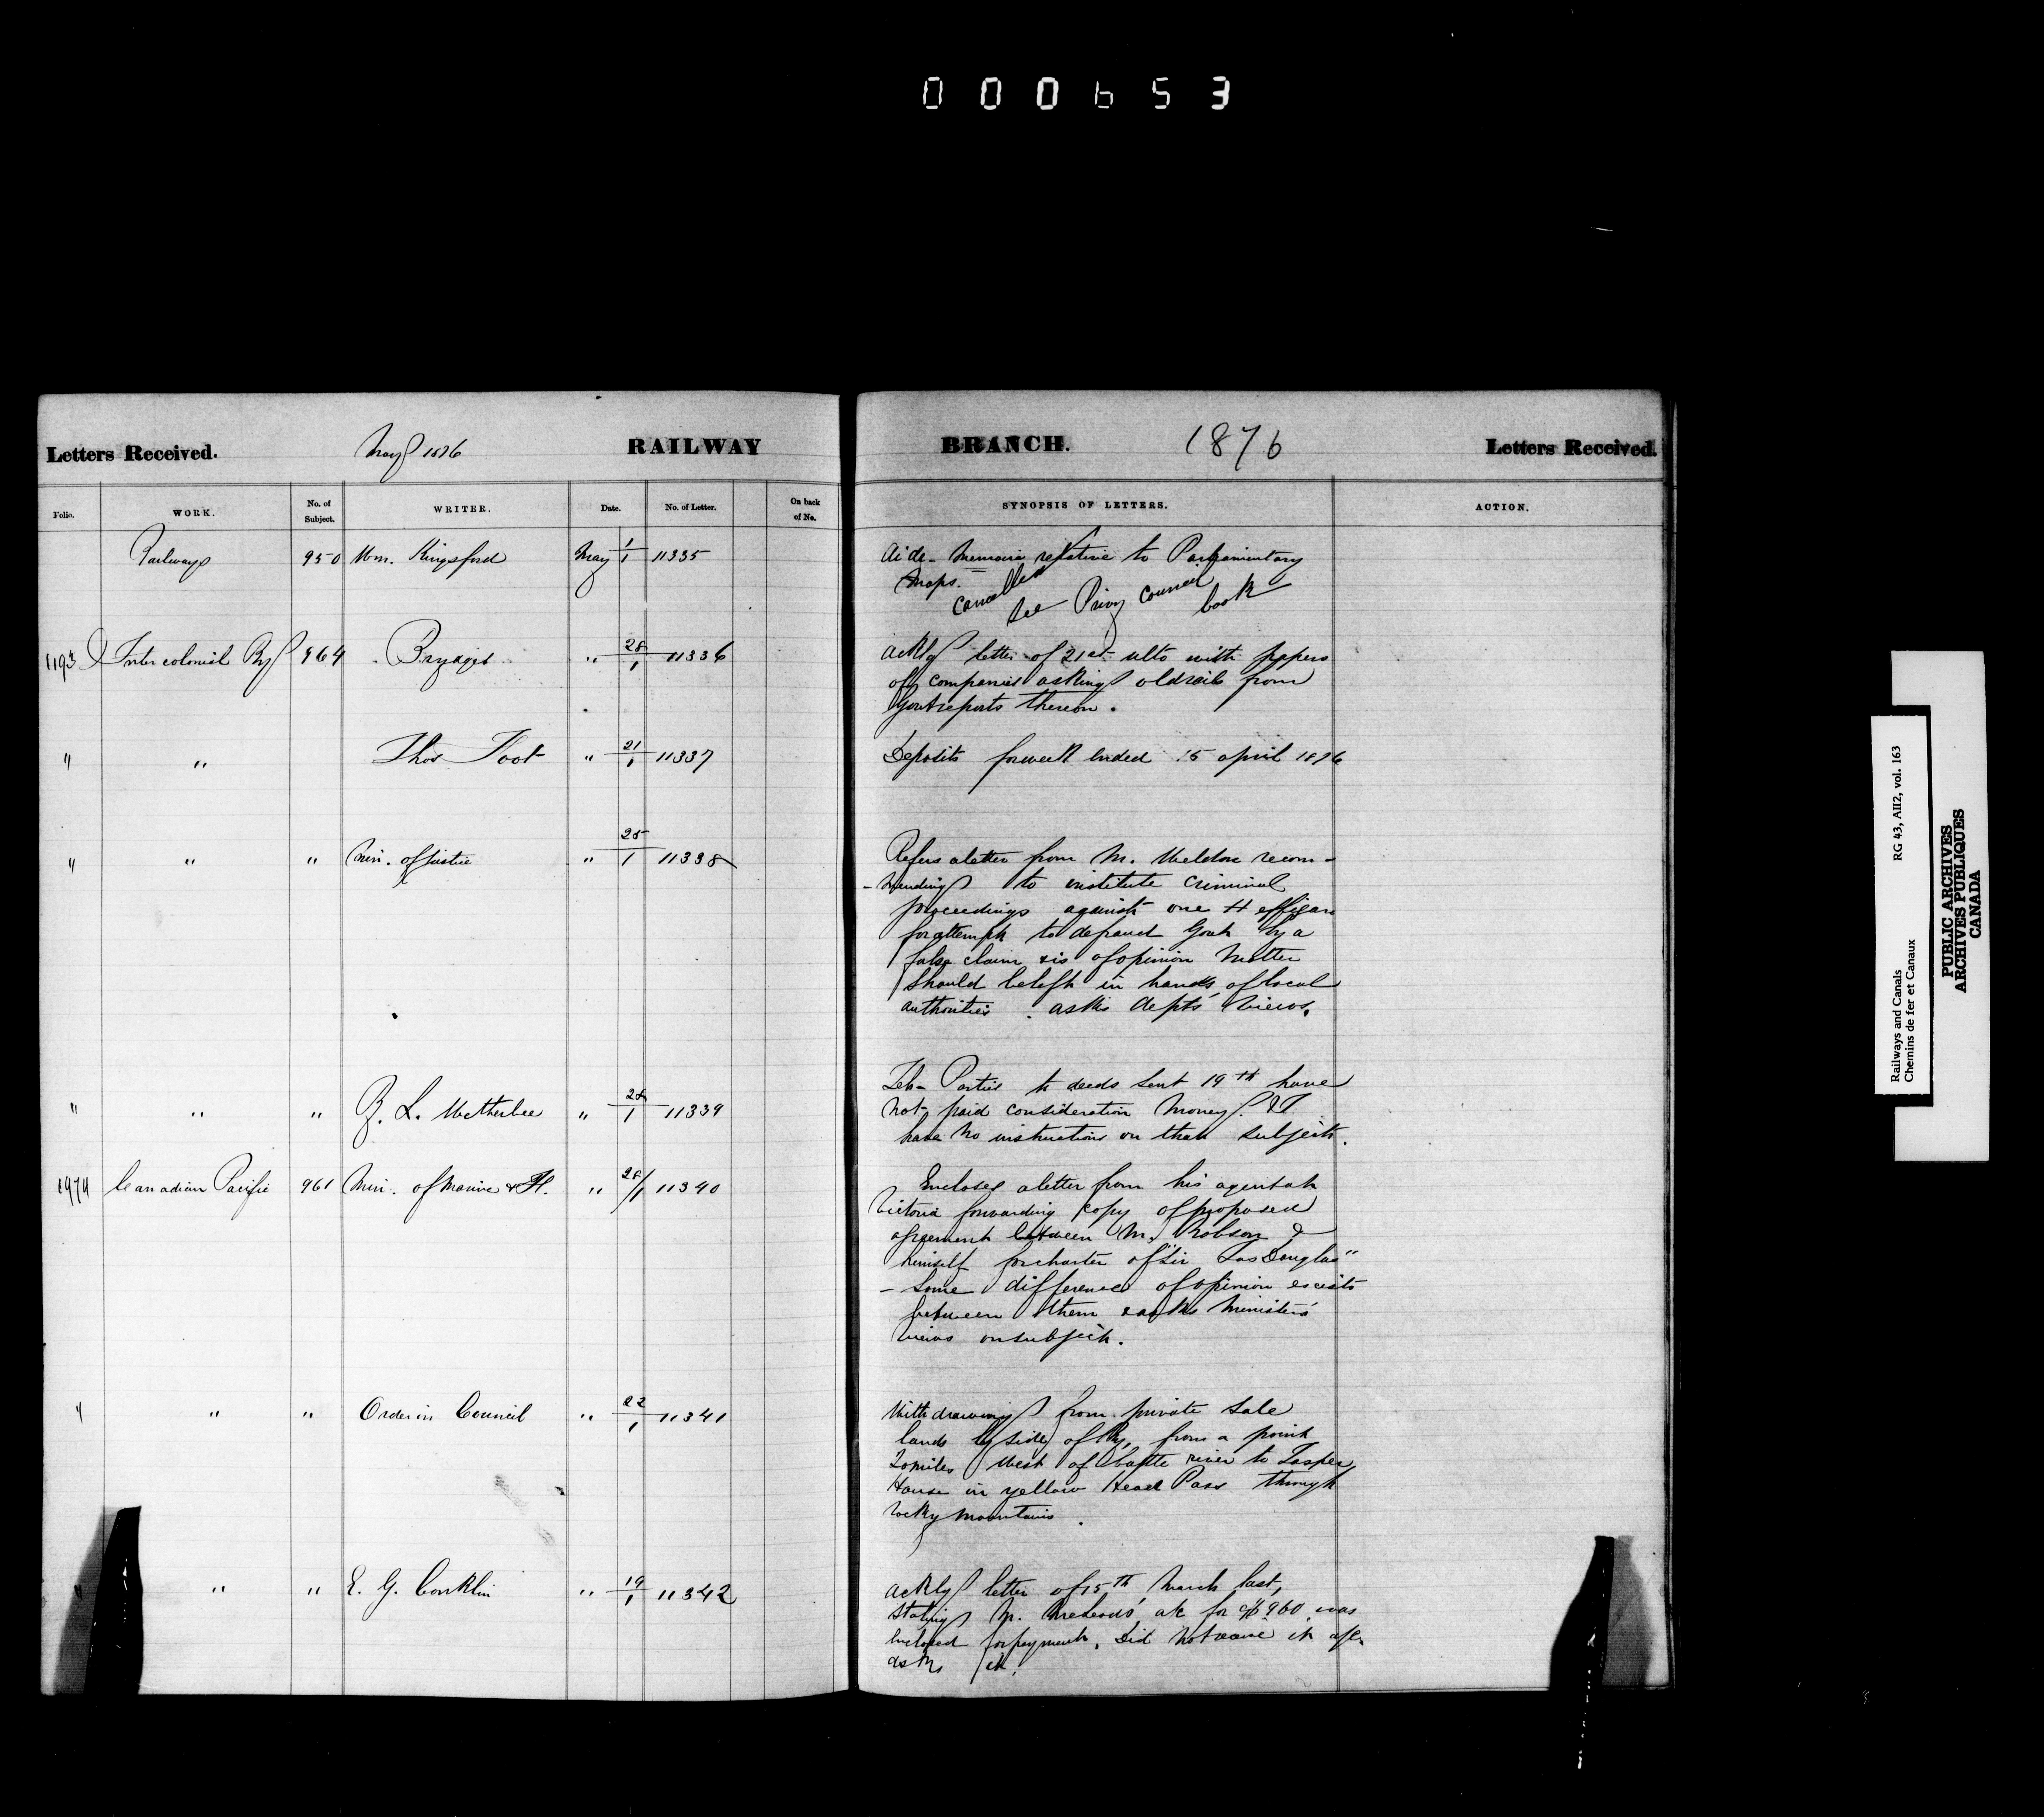 000653
Letters Received. May 1876 RAILWAY
BRANCH. 1876 Letters Received.
Folio. WORK. No. of Subject. WRITER. Date. No. of Letter. On back of No.
SYNOPSIS OF LETTERS. ACTION.
Railways 950 Wm. Kingsford May 1/1 11335
Aide-Memoire relative to Parliamentary
Maps.
Cancelled
See Privy Council
book
1193 Intercolonial Ry 964 Brydges " 28/1 11336
Ackly letter of 21st ulto with papers
of companies asking old rails from
Govt reports thereon.
" " Thos Foot " 21/1 11337
Deposits for week ended 15 april 1876
" " " Min. of Justice " 25/1 11338
Refers a letter from Mr. Weldon recom-
-mending to institute criminal
proceedings against one Heffigan
for attempt to defraud Govt by a
false claim & is of opinion Matter
should be left in hands of local
authorities. asks depts' views.
" " " L. Wetherbee " 28/1 11339
Teb- Parties to deeds sent 19th have
not paid consideration Money. &
have no instructions on that subject.
1974 Canadian Pacific 961 Min. of Marine & F. " 28/1 11340
Encloses a letter from his agent at
Victoria forwarding copy of proposed
agreement between Mr. Robson &
himself for charter of "Sir Jas Douglas"
- Some difference of opinion exists
between them & asks Ministers'
views on subject.
" " " Order in Council " 22/1 11341
Withdrawing from private sale
lands by side of Ry, from a point
20 miles West of Battle river to Jasper
House in yellow Head Pass through
rocky mountains.
" " " E. G. Conklin " 19/1 11342
Ackly letter of 15th March last,
stating Mr. McLeods' a/c for $960 was
enclosed for payment. Did not receive it
asks it.
Railways and Canals RG 43, AII2, vol. 163
Chemins de fer et Canaux
PUBLIC ARCHIVES
ARCHIVES PUBLIQUES
CANADA